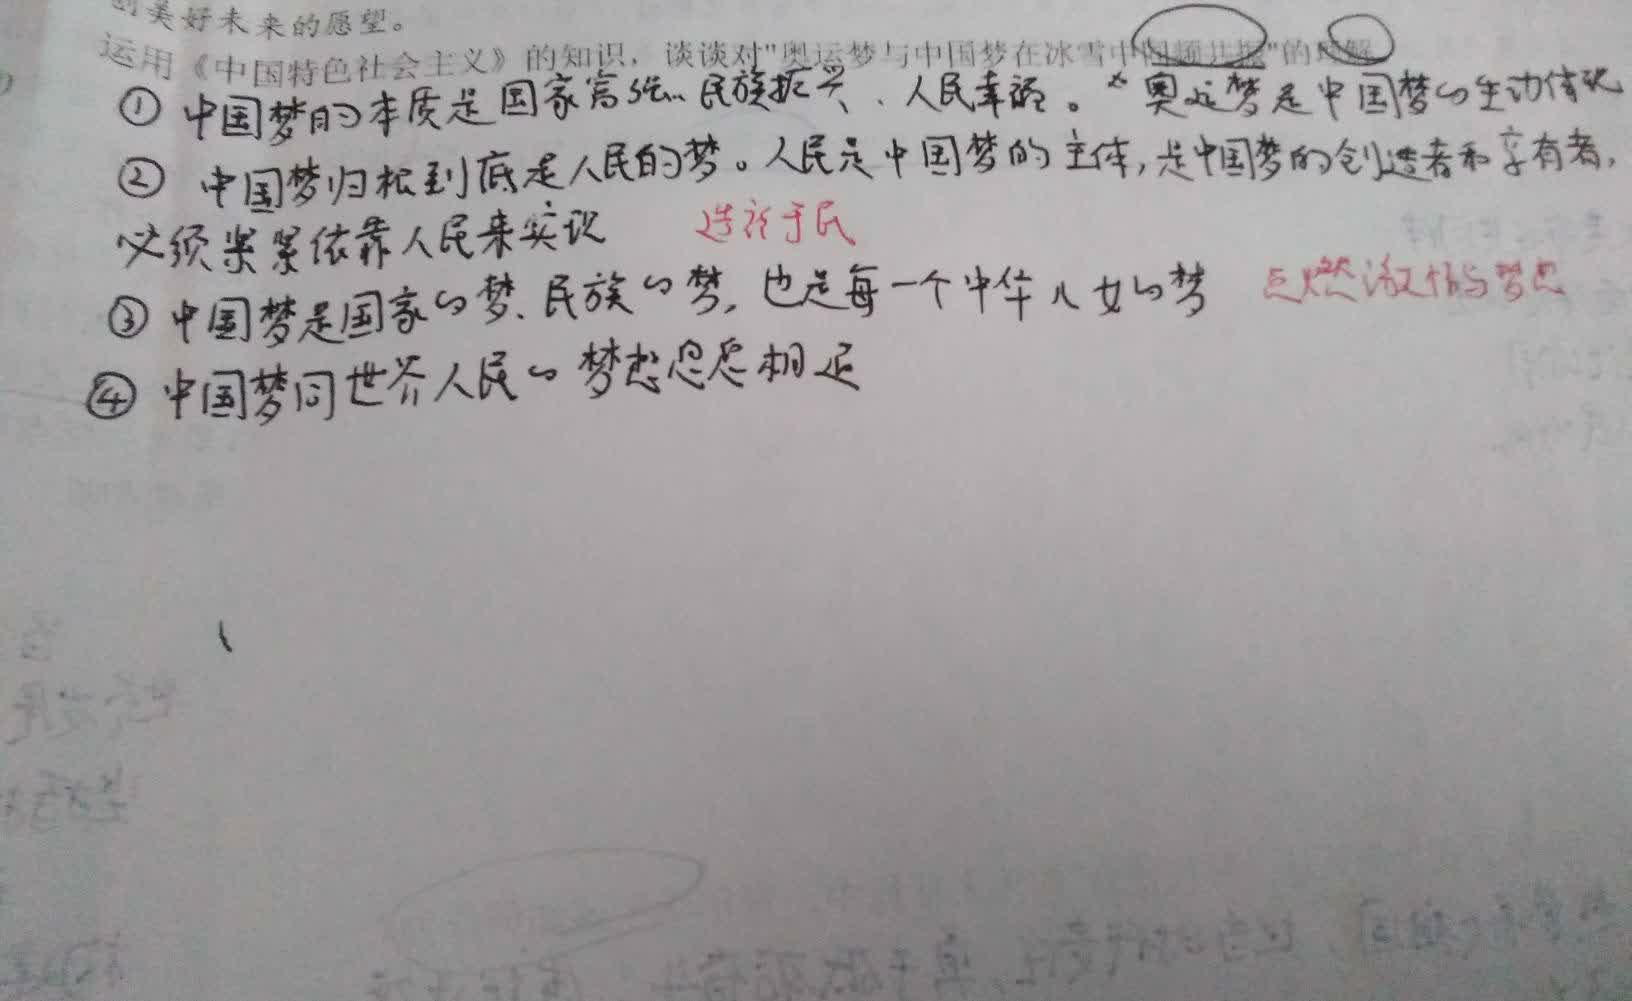 创美好未来的愿望。
运用《中国特色社会主义》的知识，谈谈对"奥运梦与中国梦在冰雪中同频共振"的理解
① 中国梦的本质是国家富强、民族振兴、人民幸福。*奥运梦是中国梦的生动体现
② 中国梦归根到底是人民的梦。人民是中国梦的主体,是中国梦的创造者和享有者,
必须紧紧依靠人民来实现 造福于民
③ 中国梦是国家的梦、民族的梦, 也是每一个中华儿女的梦 点燃激情与梦想
④ 中国梦同世界人民的梦想息息相通